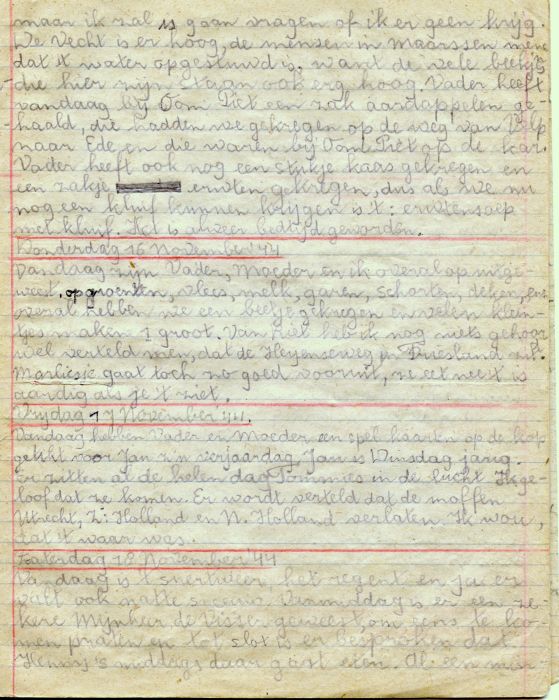 maar ik zal is gaan vragen of ik er geen krijg.
De Vecht is er hoog, de mensen in Maarssen mene
dat 't water opgestuwd is, want de vele beekjes
die hier zijn staan ook erg hoog. Vader heeft
vandaag bij Oom Piet een zak aardappelen ge-
haald, die hadden we gekregen op de weg van Velp
naar Ede en die waren bij Oom Piet op de kar.
Vader heeft ook nog een stukje kaas gekregen en
een zakje erwten gekregen, dus als we nu
nog een kluif kunnen krijgen is 't: erwtensoep
met kluif. Het is alweer bedtijd geworden.
Donderdag 16 November '44
Vandaag zijn Vader, Moeder en ik overal op uitge-
weest, op groenten, vlees, melk, garen, schorten, deken, en
overal hebben we een beetje gekregen en velen klein-
tjes maken 1 groot. Van Piet heb ik nog niets gehoor
wel verteld men, dat de Heyenseweg in Friesland zit.
Marliesje gaat toch zo goed vooruit, ze eet nee 't is
aardig als je 't ziet.
Vrijdag 17 November '44.
Vandaag hebben Vader en Moeder een spel kaarten op de kop
getikt voor Jan z'n verjaardag. Jan is Dinsdag jarig.
Er zitten al de helen dag Tommies in de lucht. Ik ge-
loof dat ze komen. Er wordt verteld dat de moffen
Utrecht, Z: Holland en N. Holland verlaten. Ik wou,
dat 't waar was.
Zaterdag 18 November '44
Vandaag is 't snertweer, het regent en ja er
valt ook natte sneeuw. Vanmiddag is er een ze-
kere Mijnheer de Visser geweest om eens te ko-
men praten en tot slot is er besproken dat
Henny 's middags daar gaat eten. Al een min-